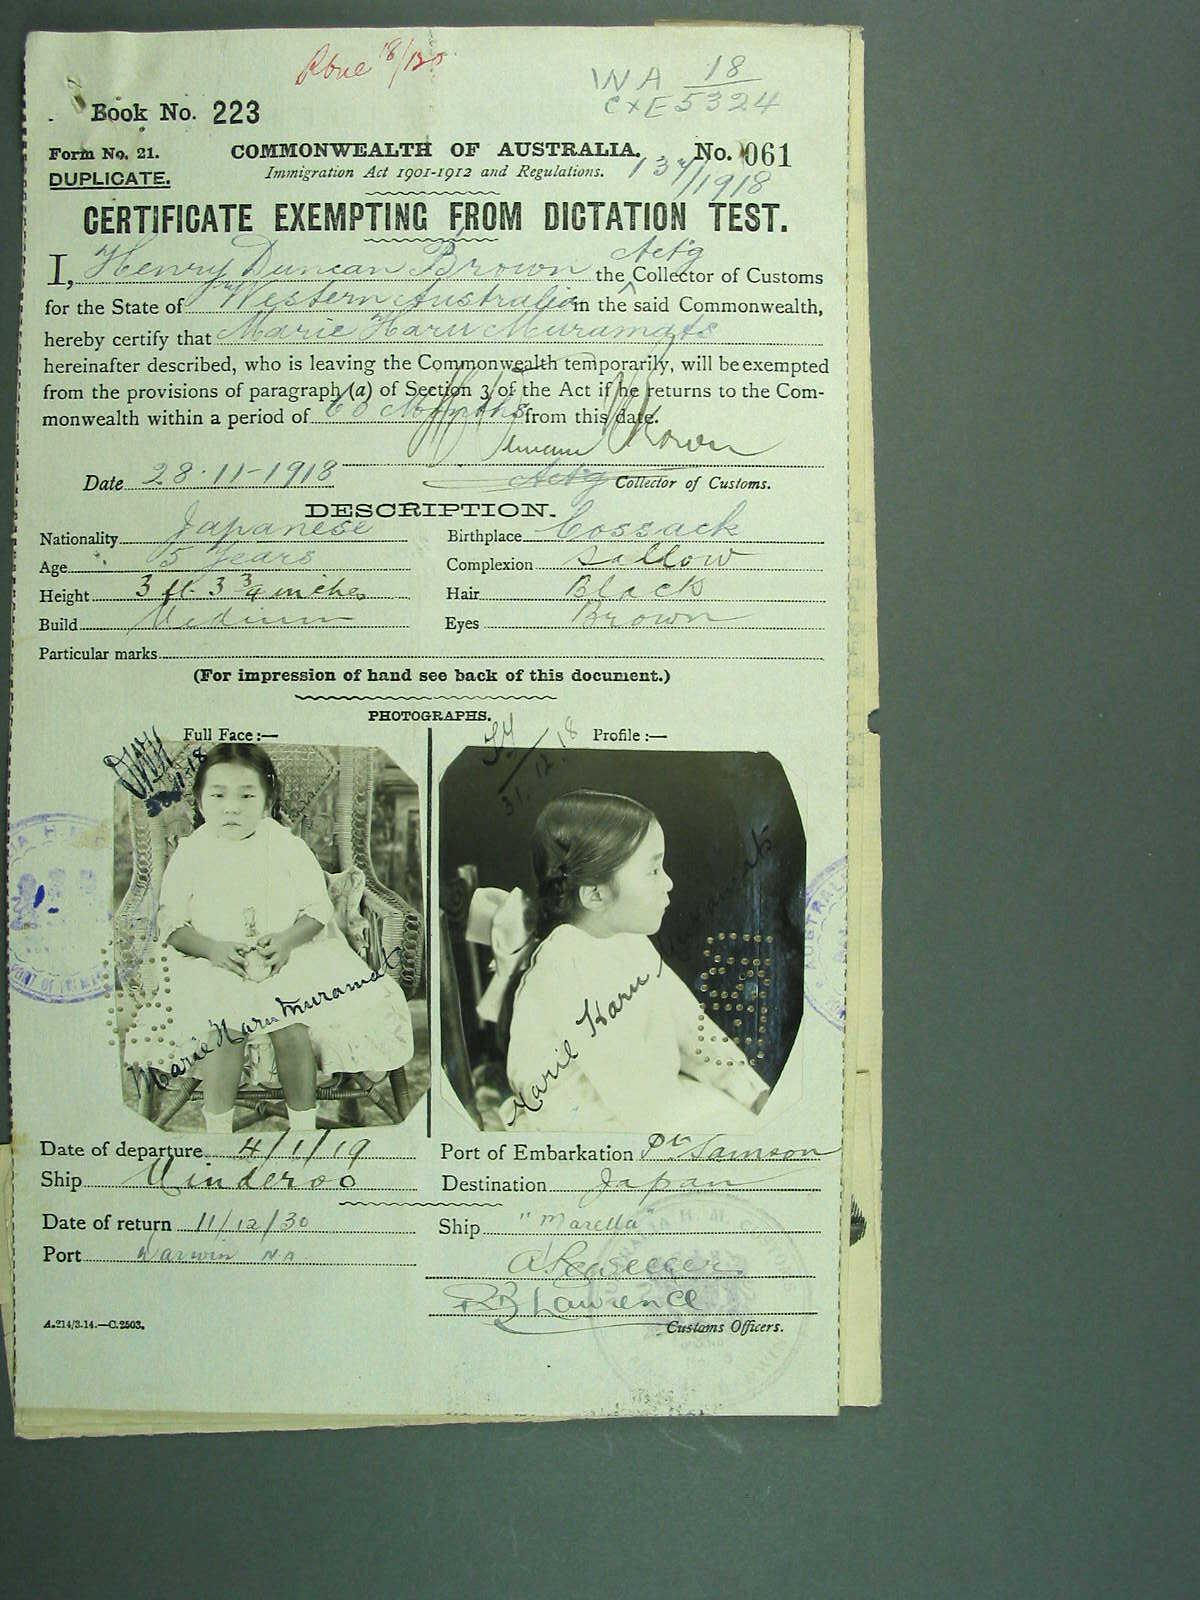 WA 18
CxE 5324
Book No. 223
Form No. 21. COMMONWEALTH OF AUSTRALIA. No. 061
DUPLICATE. Immigration Act 1901-1912 and Regulations. 1918
CERTIFICATE EXEMPTING FROM DICTATION TEST.
I, Henry Duncan Brown the Act'g Collector of Customs
for the State of Western Australia in the said Commonwealth,
hereby certify that Marie Haru Muramats
hereinafter described, who is leaving the Commonwealth temporarily, will be exempted
from the provisions of paragraph (a) of Section 3 of the Act if he returns to the Com-
monwealth within a period of 60 Months from this date.
H Duncan Brown
Date 28-11-1918 Act'g Collector of Customs.
DESCRIPTION.
Nationality Japanese Birthplace Cossack
Age 5 Years Complexion Sallow
Height 3 ft. 3 3/4 inches Hair Black
Build Medium Eyes Brown
Particular marks
(For impression of hand see back of this document.)
PHOTOGRAPHS.
Full Face :— Profile :—
31.12.18
Marie Haru Muramats
Marie Haru Muramats
Date of departure 4/1/19 Port of Embarkation Pt Samson
Ship Minderoo Destination Japan
Date of return 11/12/30 Ship "Marella"
Port Darwin NA
Lawrence
A.214/3.14.—C.2503. Customs Officers.